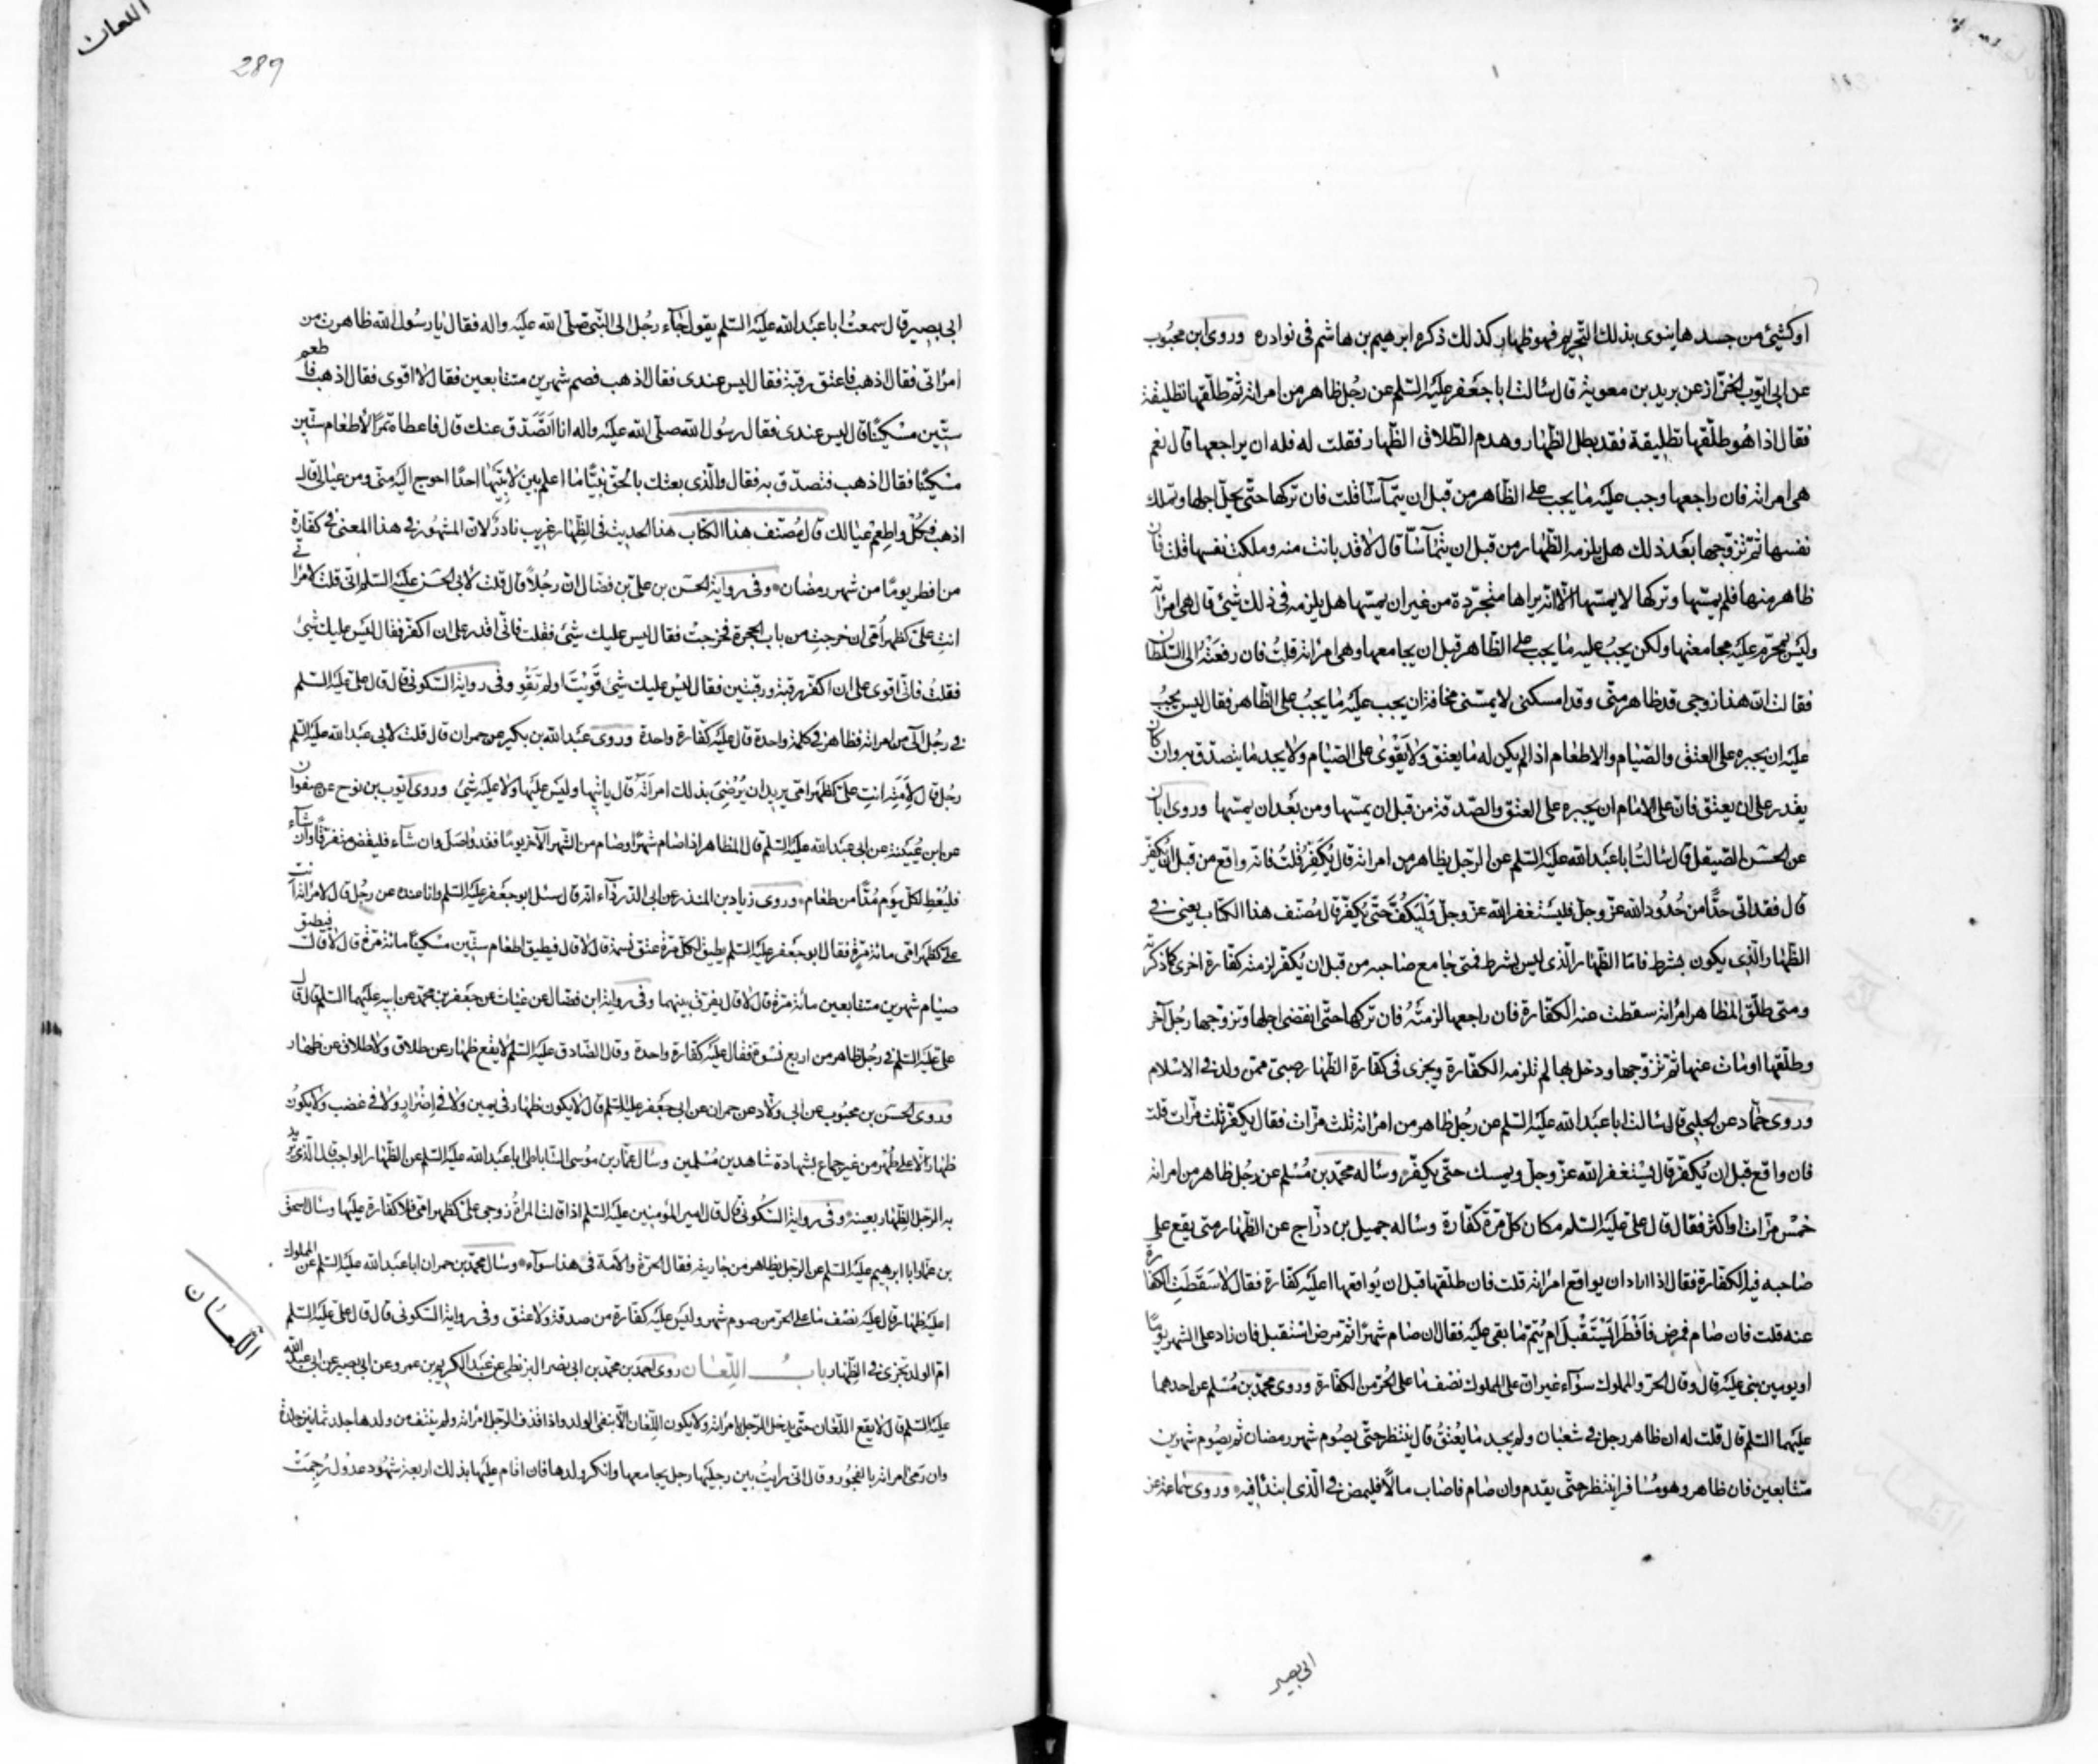 او كشئ من جسدها ينوى بذلك التحريم فهو ظهار كذلك ذكره ابرهيم بن هاشم فى نوادره وروى ابن محبوب
عن ابى ايوب الخزاز عن بريد بن معوية قال سالت ابا جعفر عليه السلم عن رجل ظاهر من امراته ثم طلقها تطليقة
فقال اذا هو طلقها تطليقة فقد بطل الظهار وهدم الطلاق الظهار فقلت له فله ان يراجعها قال نعم
هى امراته فان راجعها وجب عليه ما يجب على الظاهر من قبل ان يتماسا قلت فان تركها حتى يحل اجلها وتملك
نفسها ثم تزوجها بعد ذلك هل يلزمه الظهار من قبل ان يتماسا قال لا قد بانت منه وملكت نفسها قلت فان
ظاهر منها فلم يمسها وتركها لا يمسها الا انه يراها متجردة من غير ان يمسها هل يلزمه فى ذلك شئ قال هى امراته
وليس بمحرم عليه مجامعتها ولكن يجب عليه ما يجب على الظاهر قبل ان يجامعها وهى امراته قلت فان رفعته الى السلطان
فقالت ان هذا زوجى قد ظاهر منى وقد امسكنى لا يمسنى مخافة ان يجب عليه ما يجب على الظاهر فقال ليس يجب
عليه ان يجبره على العتق والصيام والاطعام اذا لم يكن له ما يعتق ولا يقوى على الصيام ولا يجد ما يتصدق به وان كان
يقدر على ان يعتق فان على الامام ان يجبره على العتق والصدقة من قبل ان يمسها ومن بعد ان يمسها وروى ابان
عن الحسن الصيقل قال سالت ابا عبد الله عليه السلم عن الرجل يظاهر من امراته قال يكفر قلت فانه واقع من قبل ان يكفر
قال فقد اتى حدا من حدود الله عز وجل فليستغفر الله عز وجل وليكف حتى يكفر قال مصنف هذا الكتاب يعنى فى
الظهار الذى يكون بشرط فاما الظهار الذى ليس بشرط فمتى جامع صاحبه من قبل ان يكفر لزمته كفارة اخرى كما ذكرته
ومتى طلق المظاهر امراته سقطت عنه الكفارة فان راجعها لزمته فان تركها حتى انقضى اجلها وتزوجها رجل آخر
وطلقها او مات عنها ثم تزوجها ودخل بها لم تلزمه الكفارة ويجزى فى كفارة الظهار صبى ممن ولد فى الاسلام
وروى حماد عن الحلبى قال سالت ابا عبد الله عليه السلم عن رجل ظاهر من امراته ثلث مرات فقال يكفر ثلث مرات قلت
فان واقع قبل ان يكفر قال يستغفر الله عز وجل ويمسك حتى يكفر وساله محمد بن مسلم عن رجل ظاهر من امراته
خمس مرات او اكثر فقال قال على عليه السلم مكان كل مرة كفارة وساله جميل بن دراج عن الظهار متى يقع على
صاحبه فيه الكفارة فقال اذا اراد ان يواقع امراته قلت فان طلقها قبل ان يواقعها اعليه كفارة فقال لا سقطت الكفارة
عنه قلت فان صام فمرض فافطر ايستقبل ام يتم ما بقى عليه فقال ان صام شهرا ثم مرض استقبل فان زاد على الشهر يوما
او يومين بنى عليه قال وقال الحر والمملوك سواء غير ان على المملوك نصف ما على الحر من الكفارة وروى محمد بن مسلم عن احدهما
عليهما السلم قال قلت له ان ظاهر رجل فى شعبان ولم يجد ما يعتق قال ينتظر حتى يصوم شهر رمضان ثم يصوم شهرين
متتابعين فان ظاهر وهو مسافر انتظر حتى يقدم وان صام فاصاب مالا فليمض فى الذى ابتدا فيه وروى جماعة عن
ابى بصير
اللعان
289
ابى بصير قال سمعت ابا عبد الله عليه السلم يقول جاء رجل الى النبى صلى الله عليه واله فقال يا رسول الله ظاهرت من
امراتى فقال اذهب فاعتق رقبة فقال ليس عندى فقال اذهب فصم شهرين متتابعين فقال لا اقوى فقال اذهب فاطعم
ستين مسكينا قال ليس عندى فقال رسول الله صلى الله عليه واله انا اتصدق عنك قال فاعطاه تمرا لاطعام ستين
مسكينا فقال اذهب فتصدق به فقال والذى بعثك بالحق نبيا ما اعلم بين لابتيها احدا احوج اليه منى ومن عيالى قال
اذهب فكل واطعم عيالك قال مصنف هذا الكتاب هذا الحديث فى الظهار غريب نادر لان المشهور فى هذا المعنى فى كفارة
من افطر يوما من شهر رمضان وفى رواية الحسن بن على بن فضال ان رجلا قال قلت لابى الحسن عليه السلم انى قلت لامراتى
انت على كظهر امى ان خرجت من باب الحجرة فخرجت فقال ليس عليك شئ فقلت فانى اقدر على ان اكفر فقال ليس عليك شئ
فقلت فانى اقوى على ان اكفر برقبة ورقبتين فقال ليس عليك شئ قويت او لم تقو وفى رواية السكونى قال قال على عليه السلم
فى رجل آلى من امراته فظاهر فى كلمة واحدة قال عليه كفارة واحدة وروى عبد الله بن بكير عن حمران قال قلت لابى عبد الله عليه السلم
رجل قال لامته انت على كظهر امى يريد ان يرضى بذلك امراته قال ياتيها وليس عليها ولا عليه شئ وروى ايوب بن نوح عن صفوان
عن ابن عيينة عن ابى عبد الله عليه السلم قال المظاهر اذا صام شهرا وصام من الشهر الآخر يوما فقد واصل وان شاء فليقض متفرقا وان شاء
فليعط لكل يوم مدا من طعام وروى زياد بن المنذر عن ابى الدرداء انه قال سئل ابو جعفر عليه السلم وانا عنده عن رجل قال لامراته انت
على كظهر امى مائة مرة فقال ابو جعفر عليه السلم يطيق لكل مرة عتق نسمة قال لا قال فيطيق اطعام ستين مسكينا مائة مرة قال لا قال فيطيق
صيام شهرين متتابعين مائة مرة قال لا قال يفرق بينهما وفى رواية ابن فضال عن غياث عن جعفر بن محمد عن ابيه عليهما السلم قال قال
على عليه السلم فى رجل ظاهر من اربع نسوة فقال عليه كفارة واحدة وقال الصادق عليه السلم لا يقع ظهار عن طلاق ولا طلاق عن ظهار
وروى الحسن بن محبوب عن ابى ولاد عن حمران عن ابى جعفر عليه السلم قال لا يكون ظهار فى يمين ولا فى اضرار ولا فى غضب ولا يكون
ظهارا الا على طهر من غير جماع بشهادة شاهدين مسلمين وسال عمار بن موسى الساباطى ابا عبد الله عليه السلم عن الظهار الواجب قال الذى يريد
به الرجل الظهار بعينه وفى رواية السكونى قال قال امير المؤمنين عليه السلم اذا قالت المراة زوجى على كظهر امى فلا كفارة عليها وسال اسحق
بن عمار ابا ابرهيم عليه السلم عن الرجل يظاهر من جاريته فقال الحرة والامة فى هذا سواء وسال محمد بن حمران ابا عبد الله عليه السلم عن المملوك
اعليه ظهار قال عليه نصف ما على الحر من صوم شهر وليس عليه كفارة من صدقة ولا عتق وفى رواية السكونى قال قال على عليه السلم
ام الولد تجزى فى الظهار باب اللعان روى احمد بن محمد بن ابى نصر البزنطى عن عبد الكريم بن عمرو عن ابى بصير عن ابى عبد الله
عليه السلم قال لا يقع اللعان حتى يدخل الرجل بامراته ولا يكون اللعان الا بنفى الولد واذا قذف الرجل امراته ولم ينتف من ولدها جلد ثمانين جلدة
وان رمى امراته بالفجور وقال انى رايت بين رجليها رجل يجامعها وانكر ولدها فان اقام عليها بذلك اربعة شهود عدول رجمت
اللعان